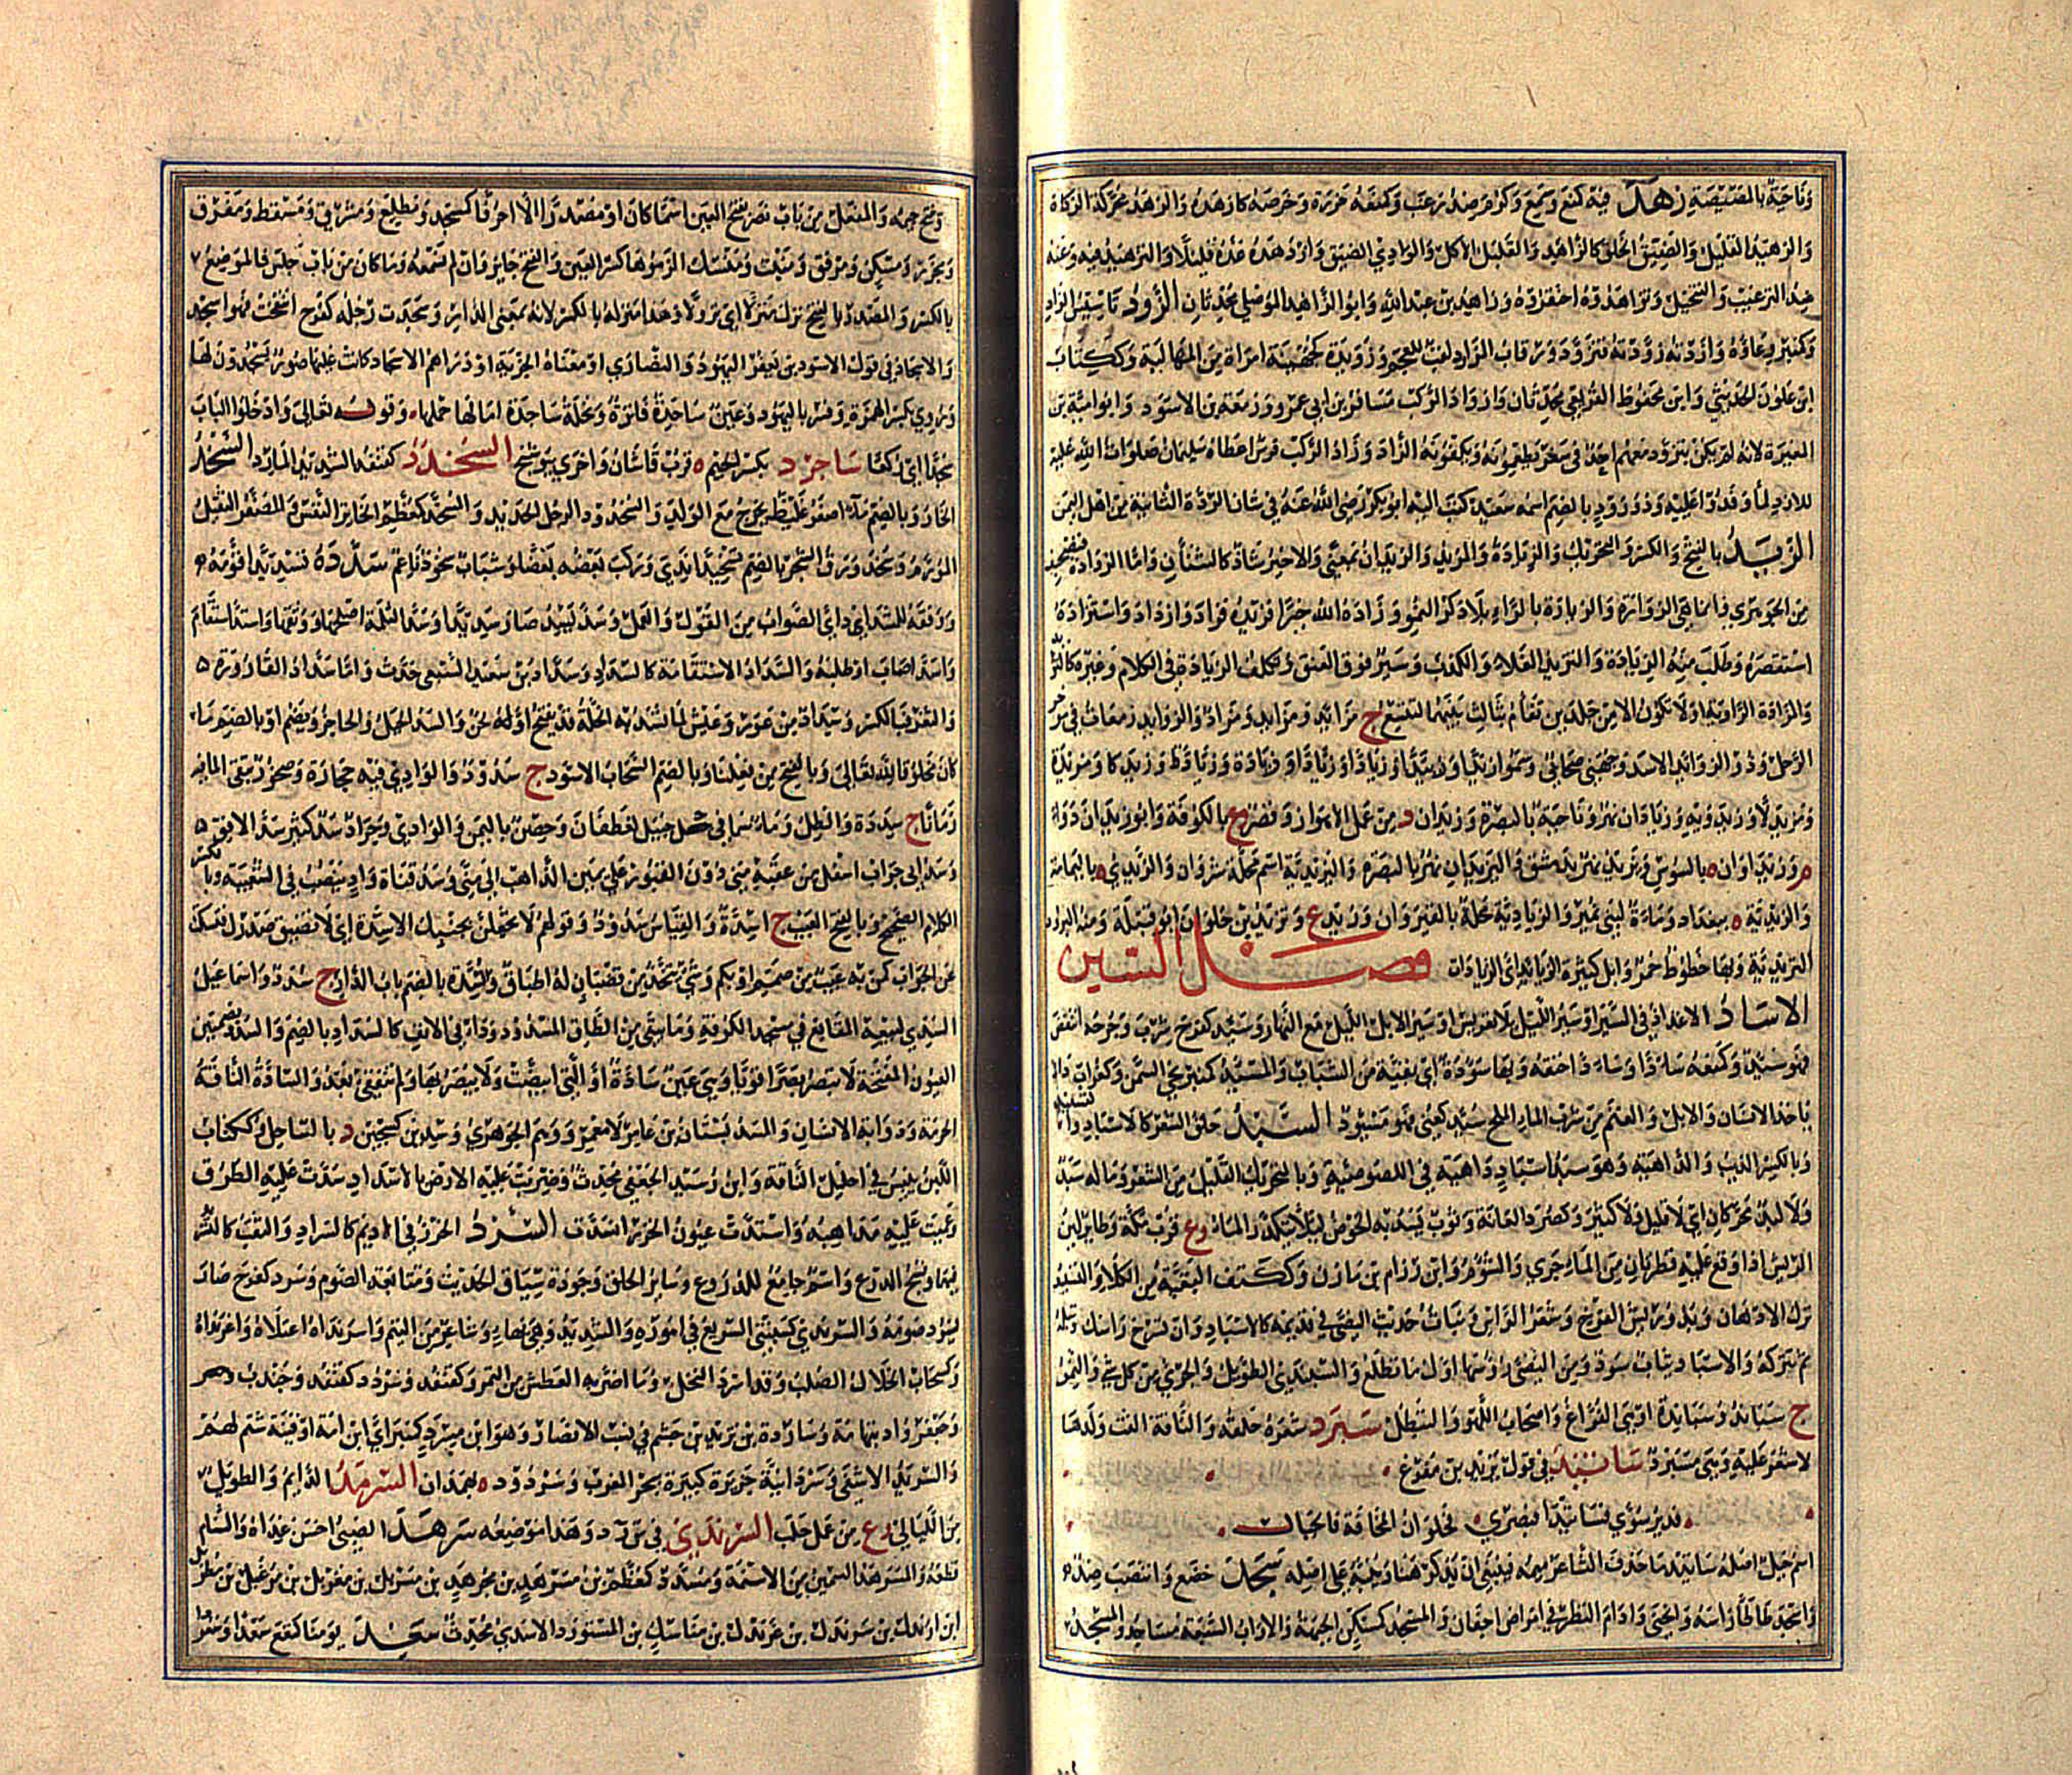 وَنَاحِيَةٌ بِالمَصِّيصَةِ زَهَدَ فيه كمنَع وسَمِعَ وكرُمَ ضد رَغِبَ وكمنَعَهُ حَزَرَهُ وخَرَصَهُ كأزهده والزهَدُ محركة الزكاة
والزهيد القليل والضيّق الخُلُق كالزاهد والقليل الأكل والوادي الضيق وازدهده عدّه قليلا والتزهيد فيه وعنه
ضد الترغيب والتبخيل وتزاهدوه احتقروه وزاهد بن عبد الله وابو الزاهد الموصلي محدثان الزود تاسيس الزاد
وكمنبر وعاؤه وازدته زودته فتزود ورقاب المزاود لقب للعجم وزويدة كجهينة امراة من المهالبة وككتاب
ابن علون الحديثي وابن محفوظ القريعي محدثان وازواد الركب مسافر بن ابي عمرو وزمعة بن الاسود وابو امية بن
المغيرة لانه لم يكن يتزود معهم احد في سفر يطعمونه ويكفونه الزاد وزاد الركب فرس اعطاه سليمان صلوات الله عليه
للازد لما وفدوا عليه وذو زود بالضم اسمه سعيد كتب اليه ابو بكر رضي الله عنه في شان الردة الثانية من اهل اليمن
الزيد بالفتح والكسر والتحريك والزيادة والمزيد والزيدان بمعنى والاخير شاذ كالشنان واما الزوادة فتصحيف
من الجوهري وانما هي الزوارة والزيارة بالراء بلا ذكر النمو وزاده الله خيرا وزيده فزاد وازداد واستزاده
استقصره وطلب منه الزيادة والتزيد الغلاء والكذب وسير فوق العنق وتكلف الزيادة في الكلام وغيره كالتزايد
والمزادة الراوية او لا تكون الا من جلدين تفام بثالث بينهما لتتسع ج مزاد ومزايد والزوايد زمعات في مؤخر
الرحل وذو الزوايد الاسد وجهني صحابي وسموا زيدا
ومزيدا وزيدويه وزيادان نهر وناحية بالبصرة وزيدان د من عمل الاهواز وقصر ع بالكوفة وابو زيدان دواء
م وزيداوان ه بالسوس ويزيد نهر بدمشق واليزيدان نهر بالبصرة واليزيدية اسم محلة شروان والزيدي ه باليمامة
والزيدية ه ببغداد وماءة لبني نمير والزيادية محلة بالقيروان وزيد ع وتزيد بن حلوان ابو قبيلة ومنه البرود
التزيدية وبها خطوط حمر وابل كثيرة الزيايد اي الزيادات فصل السين
الاسآد الاغذاذ في السير او سير الليل بلا تعريس او سير الابل الليل مع النهار وسئد كفرح شرب وجرحه انتقض
فهو سئد وكمنعه ساءدا وساءدا خنقه وبها سؤدة اي بقية من الشباب والمسئد كمنبر نحي السمن وكغراب داء
ياخذ الانسان والابل والغنم من شرب الماء الملح سئد كعني فهو مسؤود السبد حلق الشعر كالاسباد والتسبيد
وبالكسر الذئب والداهية وهو سبد اسباد داهية في اللصوصية وبالتحريك القليل من الشعر وماله سبد
ولا لبد محركتان اي لا قليل ولا كثير وكصرد العانة وثوب يسد به الحوض ليلا يتكدر الماء وع قرب مكة وطاير لين
الريش اذا وقع عليه قطرتان من الماء جرى والشؤم وابن رزام بن مازن وككتف البقية من الكلا والتسبيد
ترك الادهان وبدو ريش الفرخ وشعر الراس ونبات حديث النصي في قديمه كالاسباد وان تسرح راسك وتبله
ثم تتركه والاسباد ثياب سود ومن النصي رؤسها اول ما تطلع والسبندى الطويل والجريء من كل شيء والنمر
ج سباند وسبانيدة او هي الفراغ واصحاب اللهو والتبطل سبرد شعره حلقه والناقة القت ولدها
لا شعر عليه وهي مسبرد سانيد في قول يزيد بن مفرغ
فدير سُوى فساتيدا فبصرى فحلوان المخافة فالجبال
اسم جبل اصله ساتيدما حذف الشاعر ميمه فينبغي ان يذكر هنا وينبه على اصله سجد خضع وانتصب ضد
واسجد طاطا راسه وانحنى وادام النظر في امراض اجفان والمسجد كمسكن الجبهة والآراب السبعة مساجد والمسجد م
وتفتح جيمه والمفعل من باب نصر بفتح العين اسما كان او مصدرا الا احرفا كمسجد ومطلع ومشرق ومسقط ومفرق
ومجزر ومسكن ومرفق ومنبت ومنسك الزموها كسر العين والفتح جايز وان لم نسمعه وما كان من باب جلس فالموضع
بالكسر والمصدر بالفتح نزل منزلا اي نزولا وهذا منزله بالكسر لانه بمعنى الدار وسجدت رجله كفرح انتفخت فهو اسجد
والاسجاد في قول الاسود بن يعفر اليهود والنصارى او معناه الجزية او دراهم الاسجاد كانت عليها صور يسجدون لها
وروي بكسر الهمزة وفسر باليهود وعين ساجدة فاترة ونخلة ساجدة امالها حملها وقوله تعالى وادخلوا الباب
سجدا اي ركعا ساجرد بكسر الجيم ه قرب قاشان واخرى ببوشنج السخدد كقنفذ الشديد المارد السخد
الحار وبالضم ماء اصفر غليظ يخرج مع الولد والسخدود الرجل الحديد والمسخد كمعظم الخاثر النفس والمصفر الثقيل
المورم وسخد ورق الشجر بالضم تسخيدا ندي وركب بعضه بعضا وشباب سخود ناعم سدده تسديدا قومه
ووفقه للسداد اي الصواب من القول والعمل وسد يسد صار سديدا وسد الثلمة اصلحها ووثقها واستد استقام
واسد اصاب او طلبه والسداد الاستقامة كالسداد وسداد بن سعيد السبعي حدث واما سداد القارورة
والثغر فبالكسر وسداد من عوز وعيش لما تسد به الخلة قد يفتح او لحن والسد الجبل والحاجز ويضم او بالضم ما
كان مخلوقا لله تعالى وبالفتح من فعلنا وبالضم السحاب الاسود ج سدود والوادي فيه حجارة وصخور يبقى الماء فيه
زمانا ج سددة والظل وماء سماء في جبل لغطفان وحصن باليمن والوادي وجراد سد كثير سد الافق
وسد ابي جراب اسفل من عقبة منى دون القبور على يمين الذاهب الى منى وسد قناة واد ينصب في الشعيبة وبالكسر
الكلام الصحيح وبالفتح العيب ج اسدة والقياس سدود وقولهم لا تجعلن بجنبك الاسدة اي لا تضيق صدرك فتسكت
عن الجواب كمن به عيب من صمم او بكم وشيء يتخذ من قضبان له اطباق والسدة بالضم باب الدار ج سدد واسماعيل
السدي لبيعه المقانع في سدة مسجد الكوفة وما يبقى من الطاق المسدود وداء في الانف كالسداد بالضم والسدد بضمتين
العيون المفتحة لا تبصر بصرا قويا وهي عين سادة او التي ابيضت ولا يبصر بها ولم تنفقئ بعد والسادة الناقة
الهرمة وذوابة الانسان والمسد بستان ابن عامر لا معمر ووهم الجوهري وسدين كسجين د بالساحل وككتاب
اللبن ييبس في احليل الناقة وابن رشيد الجعفي محدث وضربت عليه الارض بالاسداد سدت عليه الطرق
وعميت عليه مذاهبه واستدت عيون الخرز انسدت السرد الخرز في الاديم كالسراد والثقب كالتسريد
فيهما ونسج الدرع واسم جامع للدروع وساير الحلق وجودة سياق الحديث ومتابعة الصوم وسرد كفرح صار
يسرد صومه والسرندى كسبنتى السريع في اموره والشديد وهي بهاء وشاعر من التيم واسرنداه اعتلاه واغرنداه
وكسحاب الخلال الصلب وقد اسرد النخل وما اضر به العطش من التمر وكقنفذ وسردد كقنفذ وجندب
وجعفر واد بتهامة وساردة بن تزيد بن جشم في نسب الانصار وهو ابن مسرد كمنبر اي ابن امة او قينة شتم لهم
والسريد الاشفى وسردانية جزيرة كبيرة ببحر المغرب وسرودد ه بهمذان السرمد الدايم والطويل
من الليالي وع من عمل حلب السرندى في س ر د وهذا موضعه سرهد الصبي احسن غذاه والسنام
قطعه والمسرهد السمين من الاسنمة ومسدد كمعظم بن مسرهد بن مجرهد بن مسربل بن مغربل بن مرعبل بن مطربل
ابن ارندل بن سرندل بن عرندل بن ماسك بن المستورد الاسدي محدث سعد يومنا كنفع سعدا وسعودا